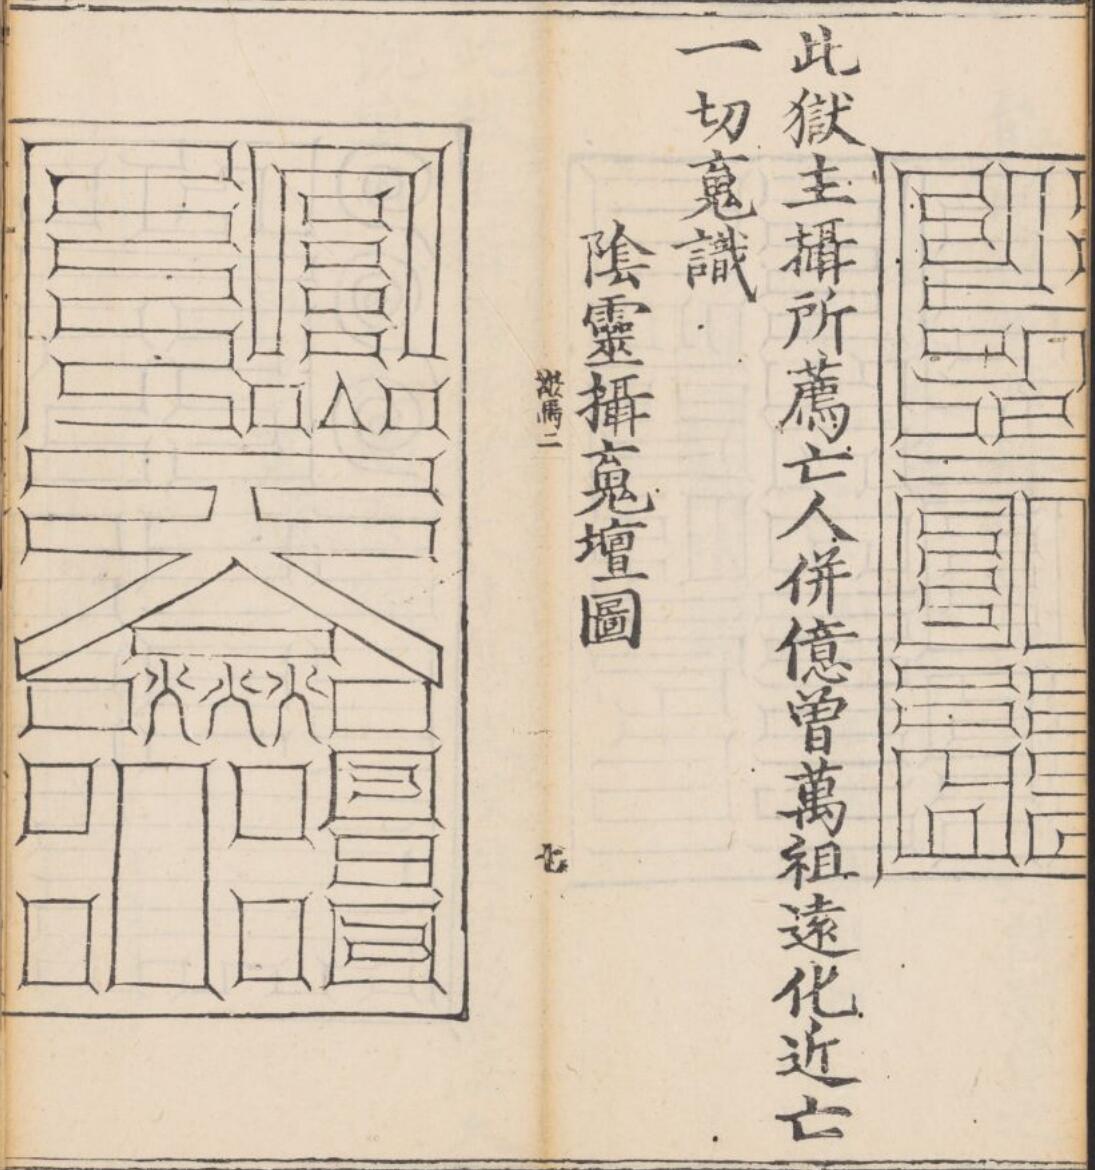 此獄主攝所薦亡人併億曾萬祖遠化近亡
一切䰟識
陰靈攝䰟壇圖